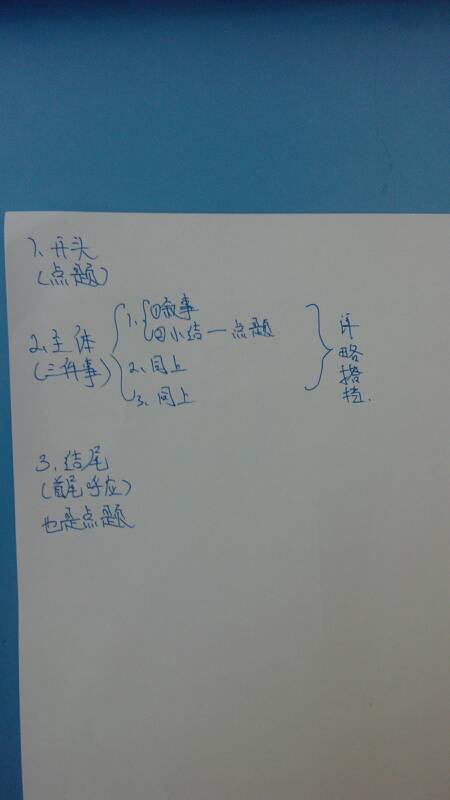 1、开头
(点题)
2、主体
(三件事)
1、①叙事
②小结一点题
2、同上
3、同上
详略搭档.
3、结尾
(首尾呼应)
也是点题